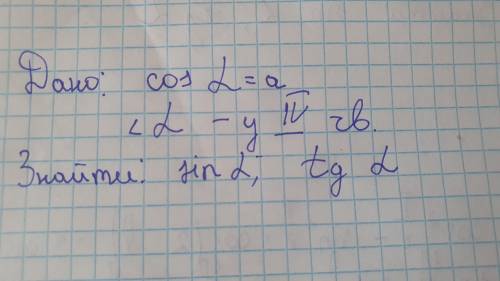 Дано: cos α = a
< α - у IV чв.
Знайти: sin α, tg α